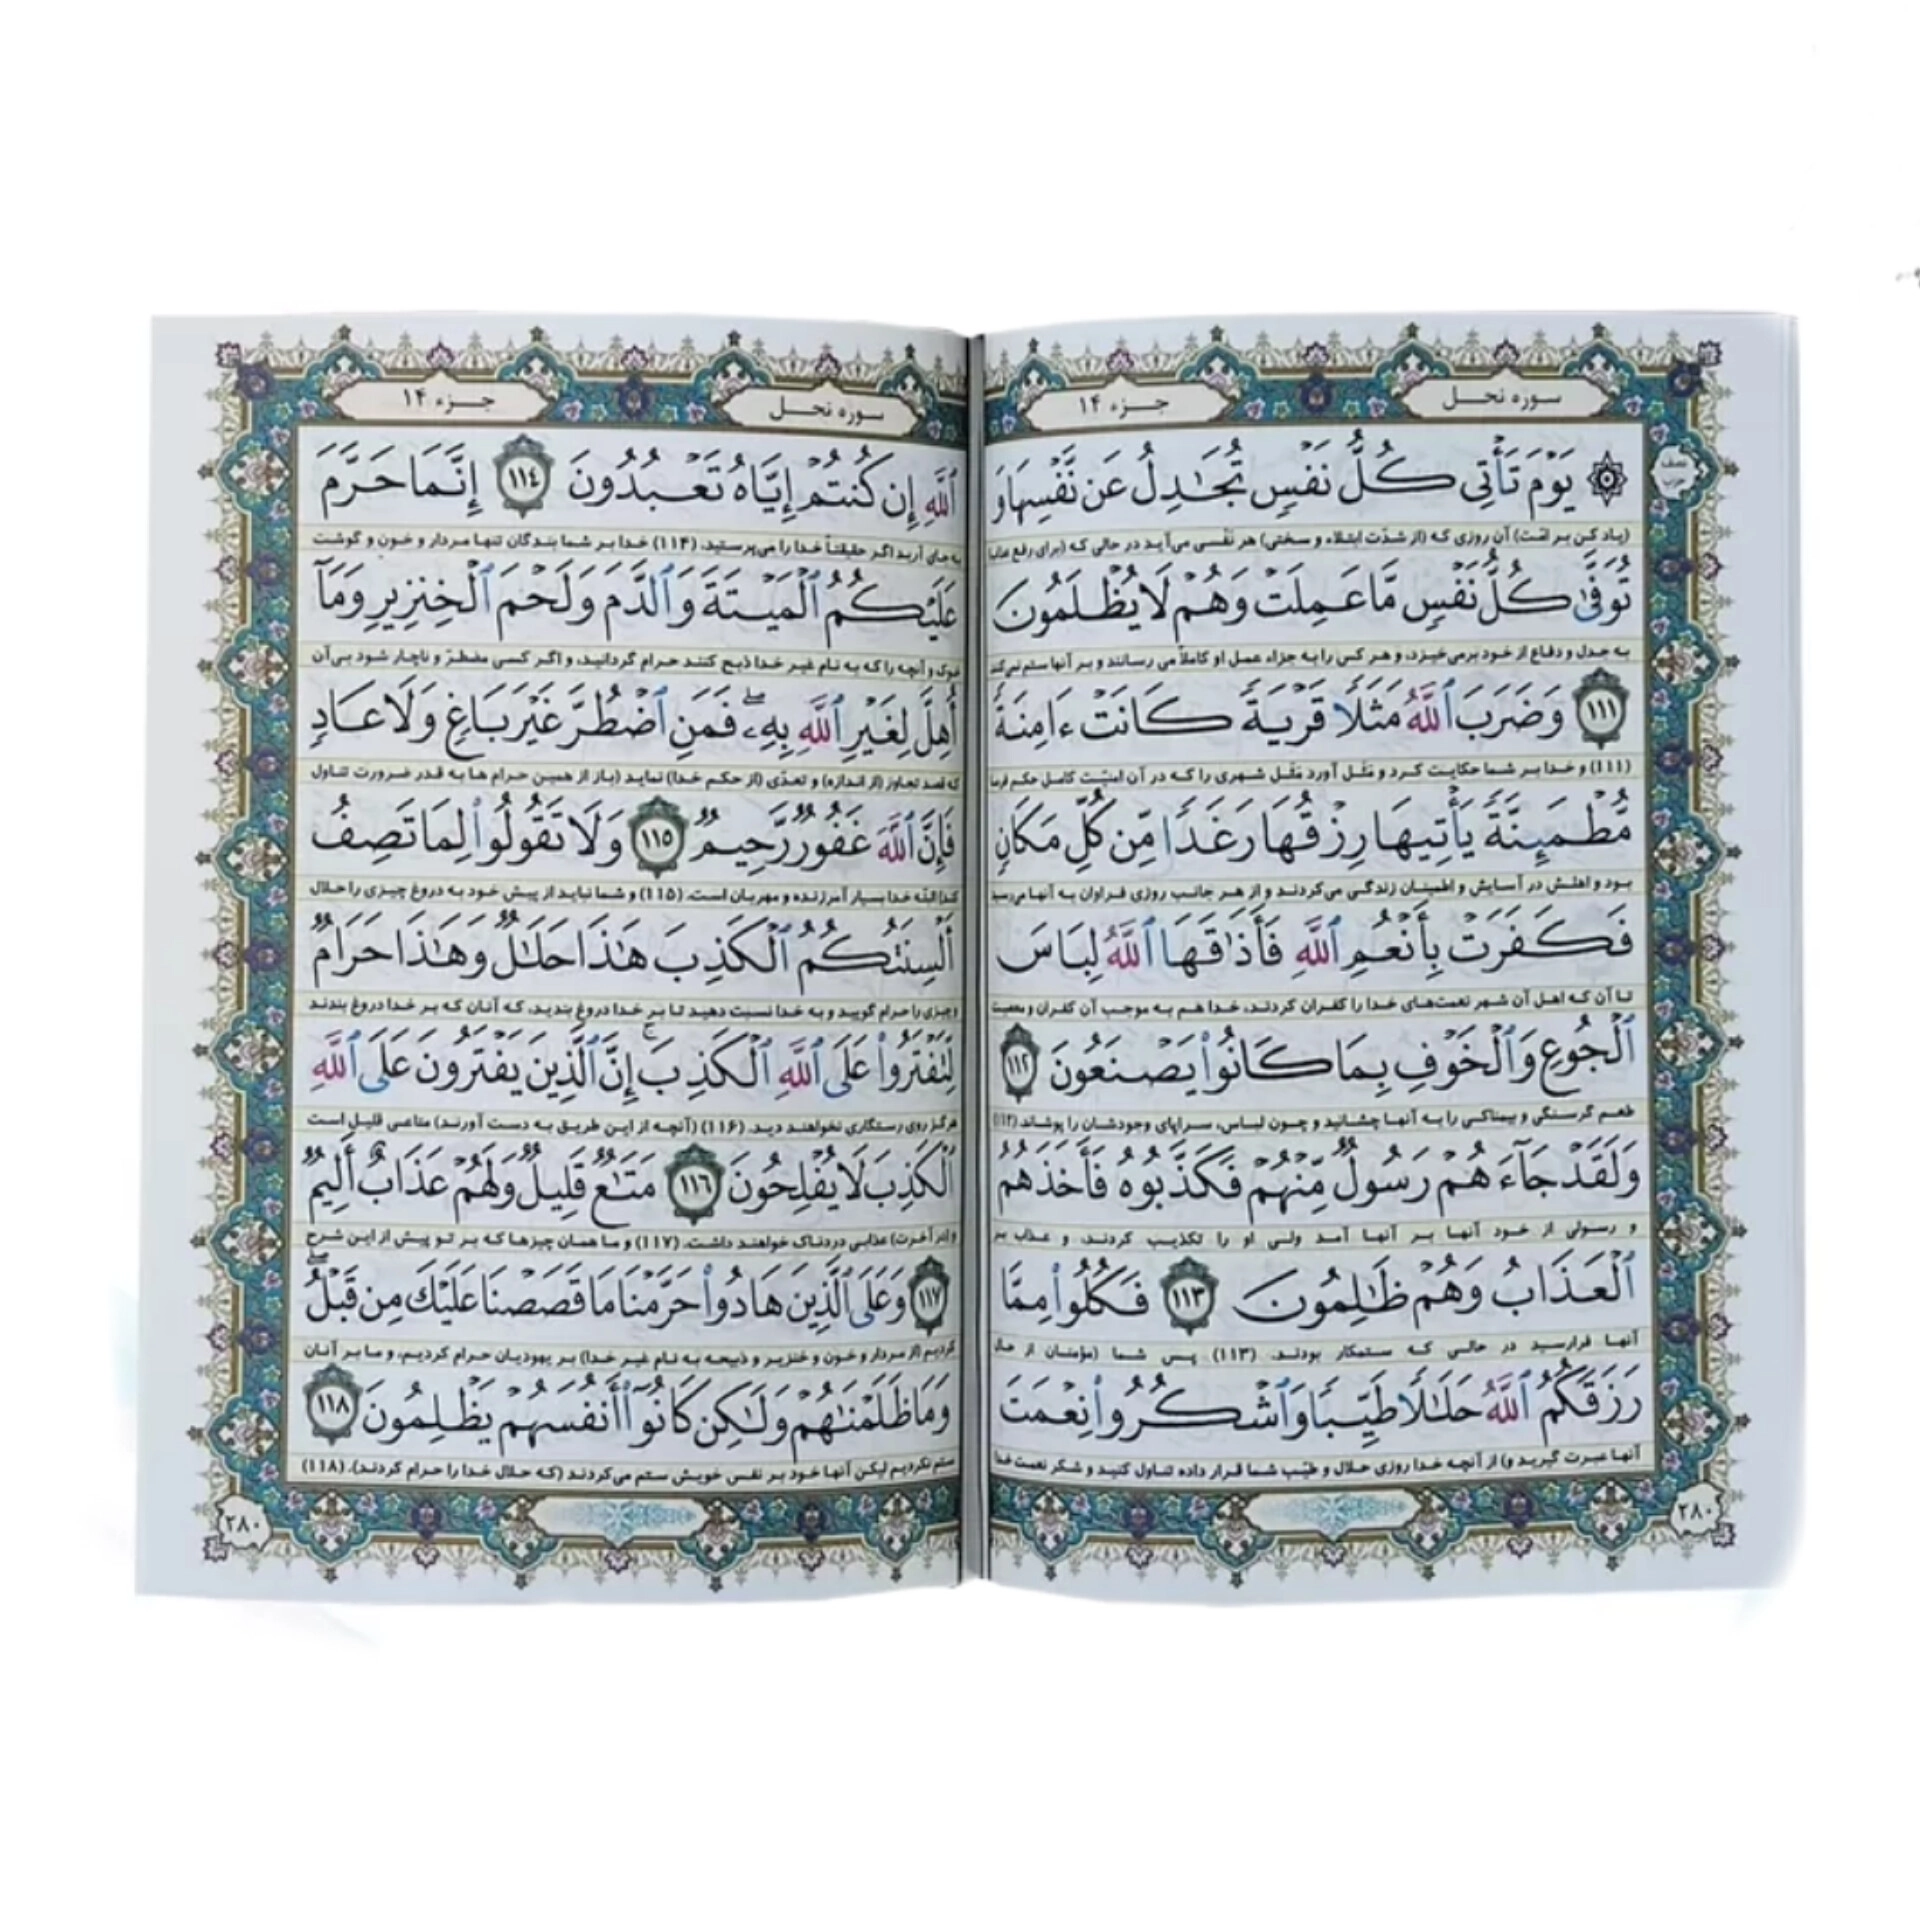 سوره نحل
جزء ۱۴
نصف
حزب
يَوْمَ تَأْتِى كُلُّ نَفْسٍ تُجَٰدِلُ عَن نَّفْسِهَا وَ
(یاد کن بر امّت) آن روزی که (از شدّت ابتلاء و سختی) هر نَفْسی می‌آید در حالی که (برای رفع عذاب)
تُوَفَّىٰ كُلُّ نَفْسٍ مَّا عَمِلَتْ وَهُمْ لَا يُظْلَمُونَ
به جدل و دفاع از خود برمی‌خیزد، و هر کس را به جزاء عمل او کاملاً می رسانند و بر آنها ستم نمی‌کنند
﴿١١١﴾ وَضَرَبَ ٱللَّهُ مَثَلًا قَرْيَةً كَانَتْ ءَامِنَةً
(۱۱۱) و خدا بر شما حکایت کرد و مَثَل آورد مَثَل شهری را که در آن امنیّت کامل حکم فرما
مُّطْمَئِنَّةً يَأْتِيهَا رِزْقُهَا رَغَدًا مِّن كُلِّ مَكَانٍ
بود و اهلش در آسایش و اطمینان زندگی می‌کردند و از هر جانب روزی فراوان به آنها می‌رسید
فَكَفَرَتْ بِأَنْعُمِ ٱللَّهِ فَأَذَٰقَهَا ٱللَّهُ لِبَاسَ
تا آن که اهل آن شهر نعمت‌های خدا را کفران کردند، خدا هم به موجب آن کفران و معصیت
ٱلْجُوعِ وَٱلْخَوْفِ بِمَا كَانُوا۟ يَصْنَعُونَ ﴿١١٢﴾
طعم گرسنگی و بیمناکی را به آنها چشانید و چون لباس، سراپای وجودشان را پوشاند (۱۱۲)
وَلَقَدْ جَآءَهُمْ رَسُولٌ مِّنْهُمْ فَكَذَّبُوهُ فَأَخَذَهُمُ
و رسولی از خود آنها بر آنها آمد ولی او را تکذیب کردند، و عذاب بر
ٱلْعَذَابُ وَهُمْ ظَٰلِمُونَ ﴿١١٣﴾ فَكُلُوا۟ مِمَّا
آنها فرارسید در حالی که ستمکار بودند. (۱۱۳) پس شما (مؤمنان از حال
رَزَقَكُمُ ٱللَّهُ حَلَٰلًا طَيِّبًا وَٱشْكُرُوا۟ نِعْمَتَ
آنها عبرت گیرید و) از آنچه خدا روزی حلال و طیّب شما قرار داده تناول کنید و شکر نعمت خدا
۲۸۰
سوره نحل
جزء ۱۴
ٱللَّهِ إِن كُنتُمْ إِيَّاهُ تَعْبُدُونَ ﴿١١٤﴾ إِنَّمَا حَرَّمَ
به جای آرید اگر حقیقتاً خدا را می‌پرستید. (۱۱۴) خدا بر شما بندگان تنها مردار و خون و گوشت
عَلَيْكُمُ ٱلْمَيْتَةَ وَٱلدَّمَ وَلَحْمَ ٱلْخِنزِيرِ وَمَآ
خوک و آنچه را که به نام غیر خدا ذبح کنند حرام گردانید، و اگر کسی مضطرّ و ناچار شود بی‌آن
أُهِلَّ لِغَيْرِ ٱللَّهِ بِهِۦ ۖ فَمَنِ ٱضْطُرَّ غَيْرَ بَاغٍ وَلَا عَادٍ
که قصد تجاوز (از اندازه) و تعدّی (از حکم خدا) نماید (باز از همین حرام ها به قدر ضرورت تناول
فَإِنَّ ٱللَّهَ غَفُورٌ رَّحِيمٌ ﴿١١٥﴾ وَلَا تَقُولُوا۟ لِمَا تَصِفُ
کند) البتّه خدا بسیار آمرزنده و مهربان است. (۱۱۵) و شما نباید از پیش خود به دروغ چیزی را حلال
أَلْسِنَتُكُمُ ٱلْكَذِبَ هَٰذَا حَلَٰلٌ وَهَٰذَا حَرَامٌ
و چیزی را حرام گویید و به خدا نسبت دهید تا بر خدا دروغ بندید، که آنان که بر خدا دروغ بندند
لِّتَفْتَرُوا۟ عَلَى ٱللَّهِ ٱلْكَذِبَ ۚ إِنَّ ٱلَّذِينَ يَفْتَرُونَ عَلَى ٱللَّهِ
هرگز روی رستگاری نخواهند دید. (۱۱۶) (آنچه از این طریق به دست آورند) متاعی قلیل است
ٱلْكَذِبَ لَا يُفْلِحُونَ ﴿١١٦﴾ مَتَٰعٌ قَلِيلٌ وَلَهُمْ عَذَابٌ أَلِيمٌ
و (در آخرت) عذابی دردناک خواهند داشت. (۱۱۷) و ما همان چیزها که بر تو پیش از این شرح
﴿١١٧﴾ وَعَلَى ٱلَّذِينَ هَادُوا۟ حَرَّمْنَا مَا قَصَصْنَا عَلَيْكَ مِن قَبْلُ ۖ
کردیم (از مردار و خون و خنزیر و ذبیحه به نام غیر خدا) بر یهودیان حرام کردیم، و ما بر آنان
وَمَا ظَلَمْنَٰهُمْ وَلَٰكِن كَانُوٓا۟ أَنفُسَهُمْ يَظْلِمُونَ ﴿١١٨﴾
ستم نکردیم لیکن آنها خود بر نفس خویش ستم می‌کردند (که حلال خدا را حرام کردند). (۱۱۸)
۲۸۰